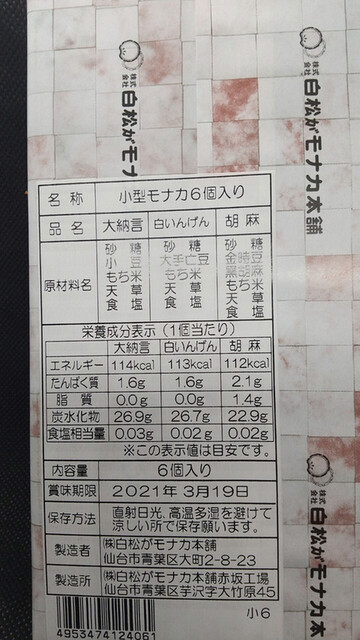 株式会社 白松がモナカ本舗
株式会社 白松がモナカ本舗
名称 小型モナカ6個入り
品名 大納言 白いんげん 胡麻
原材料名
砂糖 砂糖 砂糖
小豆 大手亡豆 金時豆
もち米 もち米 黒胡麻
天草 天草 もち米
食塩 食塩 天草
食塩
栄養成分表示(1個当たり)
大納言 白いんげん 胡麻
エネルギー 114kcal 113kcal 112kcal
たんぱく質 1.6g 1.6g 2.1g
脂質 0.0g 0.0g 1.4g
炭水化物 26.9g 26.7g 22.9g
食塩相当量 0.03g 0.02g 0.02g
※この表示値は目安です。
内容量 6個入り
賞味期限 2021年 3月19日
保存方法 直射日光、高温多湿を避けて
涼しい所で保存願います。
製造者 ㈱白松がモナカ本舗
仙台市青葉区大町2-8-23
製造所 ㈱白松がモナカ本舗赤坂工場
仙台市青葉区芋沢字大竹原45
小6
4953474124061
株式会社 白松がモナカ本